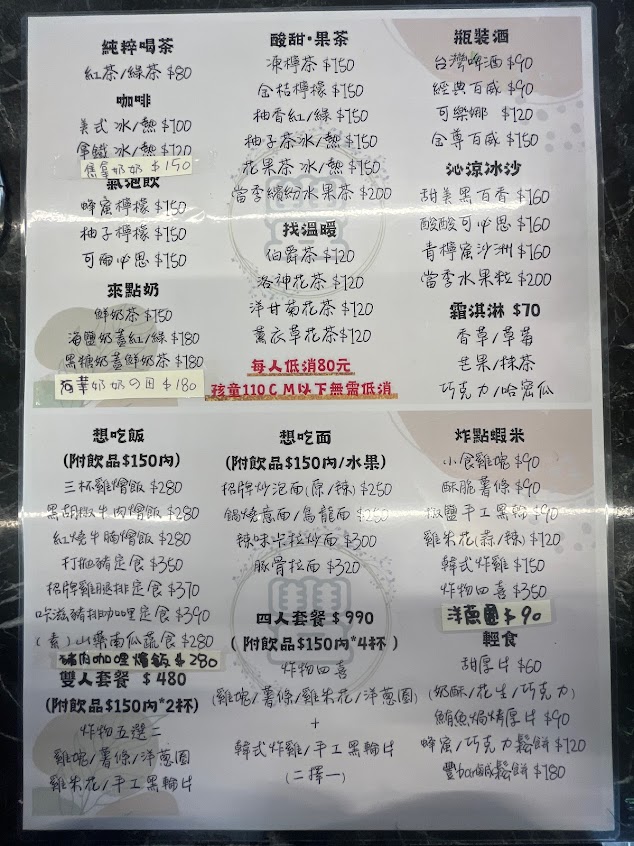 純粹喝茶
紅茶/綠茶 $80
咖啡
美式 冰/熱 $100
拿鐵 冰/熱 $120
舊拿奶奶 $150
氣泡飲
蜂蜜檸檬 $150
柚子檸檬 $150
可爾必思 $150
來點奶
鮮奶茶 $150
海鹽奶蓋紅/綠 $180
黑糖奶蓋鮮奶茶 $180
阿華奶奶の国 $180
酸甜·果茶
凍檸茶 $150
金桔檸檬 $150
柚香紅/綠 $150
柚子茶冰/熱 $150
花果茶 冰/熱 $150
當季繽紛水果茶 $200
找溫暖
伯爵茶 $120
洛神花茶 $120
洋甘菊花茶 $120
薰衣草花茶 $120
每人低消80元
孩童110CM以下無需低消
瓶裝酒
台灣啤酒 $90
經典百威 $90
可樂娜 $120
金尊百威 $150
沁涼冰沙
甜美黑百香 $160
酸酸可必思 $160
青檸蜜沙洲 $160
當季水果粒 $200
霜淇淋 $70
香草/草莓
芒果/抹茶
巧克力/哈密瓜
想吃飯
(附飲品$150內)
三杯雞燴飯 $280
黑胡椒牛肉燴飯 $280
紅燒牛腩燴飯 $280
打拋豬定食 $350
招牌雞腿排定食 $370
咔滋豬排咖哩定食 $390
(素)山藥南瓜蔬食 $280
豬肉咖哩燴飯 $280
雙人套餐 $480
(附飲品$150內*2杯)
炸物五選二
雞塊/薯條/洋蔥圈
雞米花/手工黑輪片
想吃面
(附飲品$150內/水果)
招牌炒泡面(原/辣) $250
鍋燒意面/烏龍面 $250
辣味卡拉炒面 $300
豚骨拉面 $320
四人套餐 $990
(附飲品$150內*4杯)
炸物四喜
(雞塊/薯條/雞米花/洋蔥圈)
+
韓式炸雞/手工黑輪片
(二擇一)
炸點蝦米
小食雞塊 $90
酥脆薯條 $90
椒鹽手工黑輪 $90
雞米花(蒜/辣) $120
韓式炸雞 $150
炸物四喜 $350
洋蔥圈 $90
輕食
甜厚片 $60
(奶酥/花生/巧克力)
鮪魚焗烤厚片 $90
蜂蜜/巧克力鬆餅 $120
豐bar鹹鬆餅 $180